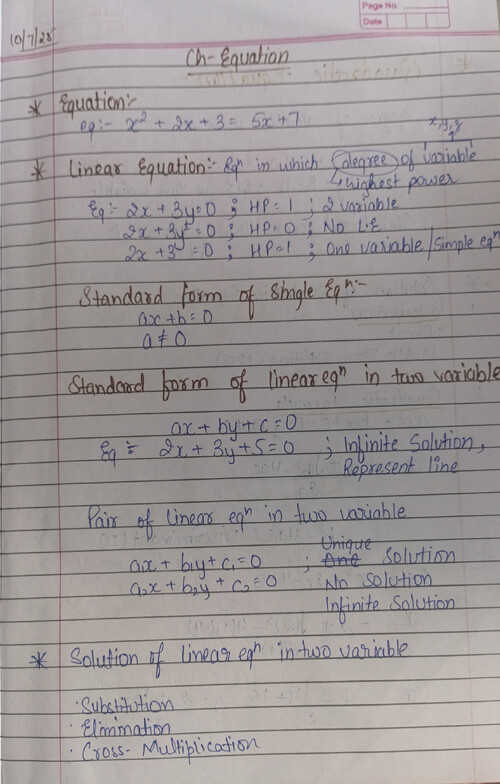 Page No.
Date
10/7/25
Ch-Equation
* Equation:-
eg:- x² + 2x + 3 = 5x + 7
x, y, z
* Linear Equation:- Eqⁿ in which degree of variable
↳ highest power
Eg:- 2x + 3y = 0 ; HP = 1 ; 2 variable
2x + 3y² = 0 ; HP = 0 ; No L.E
2x + 3 = 0 ; HP = 1 ; One variable / Simple eqⁿ
Standard form of Single Eqⁿ:-
ax + b = 0
a ≠ 0
Standard form of linear eqⁿ in two variable
ax + by + c = 0
Eg = 2x + 3y + 5 = 0 ; Infinite Solution,
Represent line
Pair of linear eqⁿ in two variable
Unique
ax + b₁y + c₁ = 0 ; One Solution
a₂x + b₂y + c₂ = 0 No Solution
Infinite Solution
* Solution of linear eqⁿ in two variable
· Substitution
· Elimination
· Cross-Multiplication